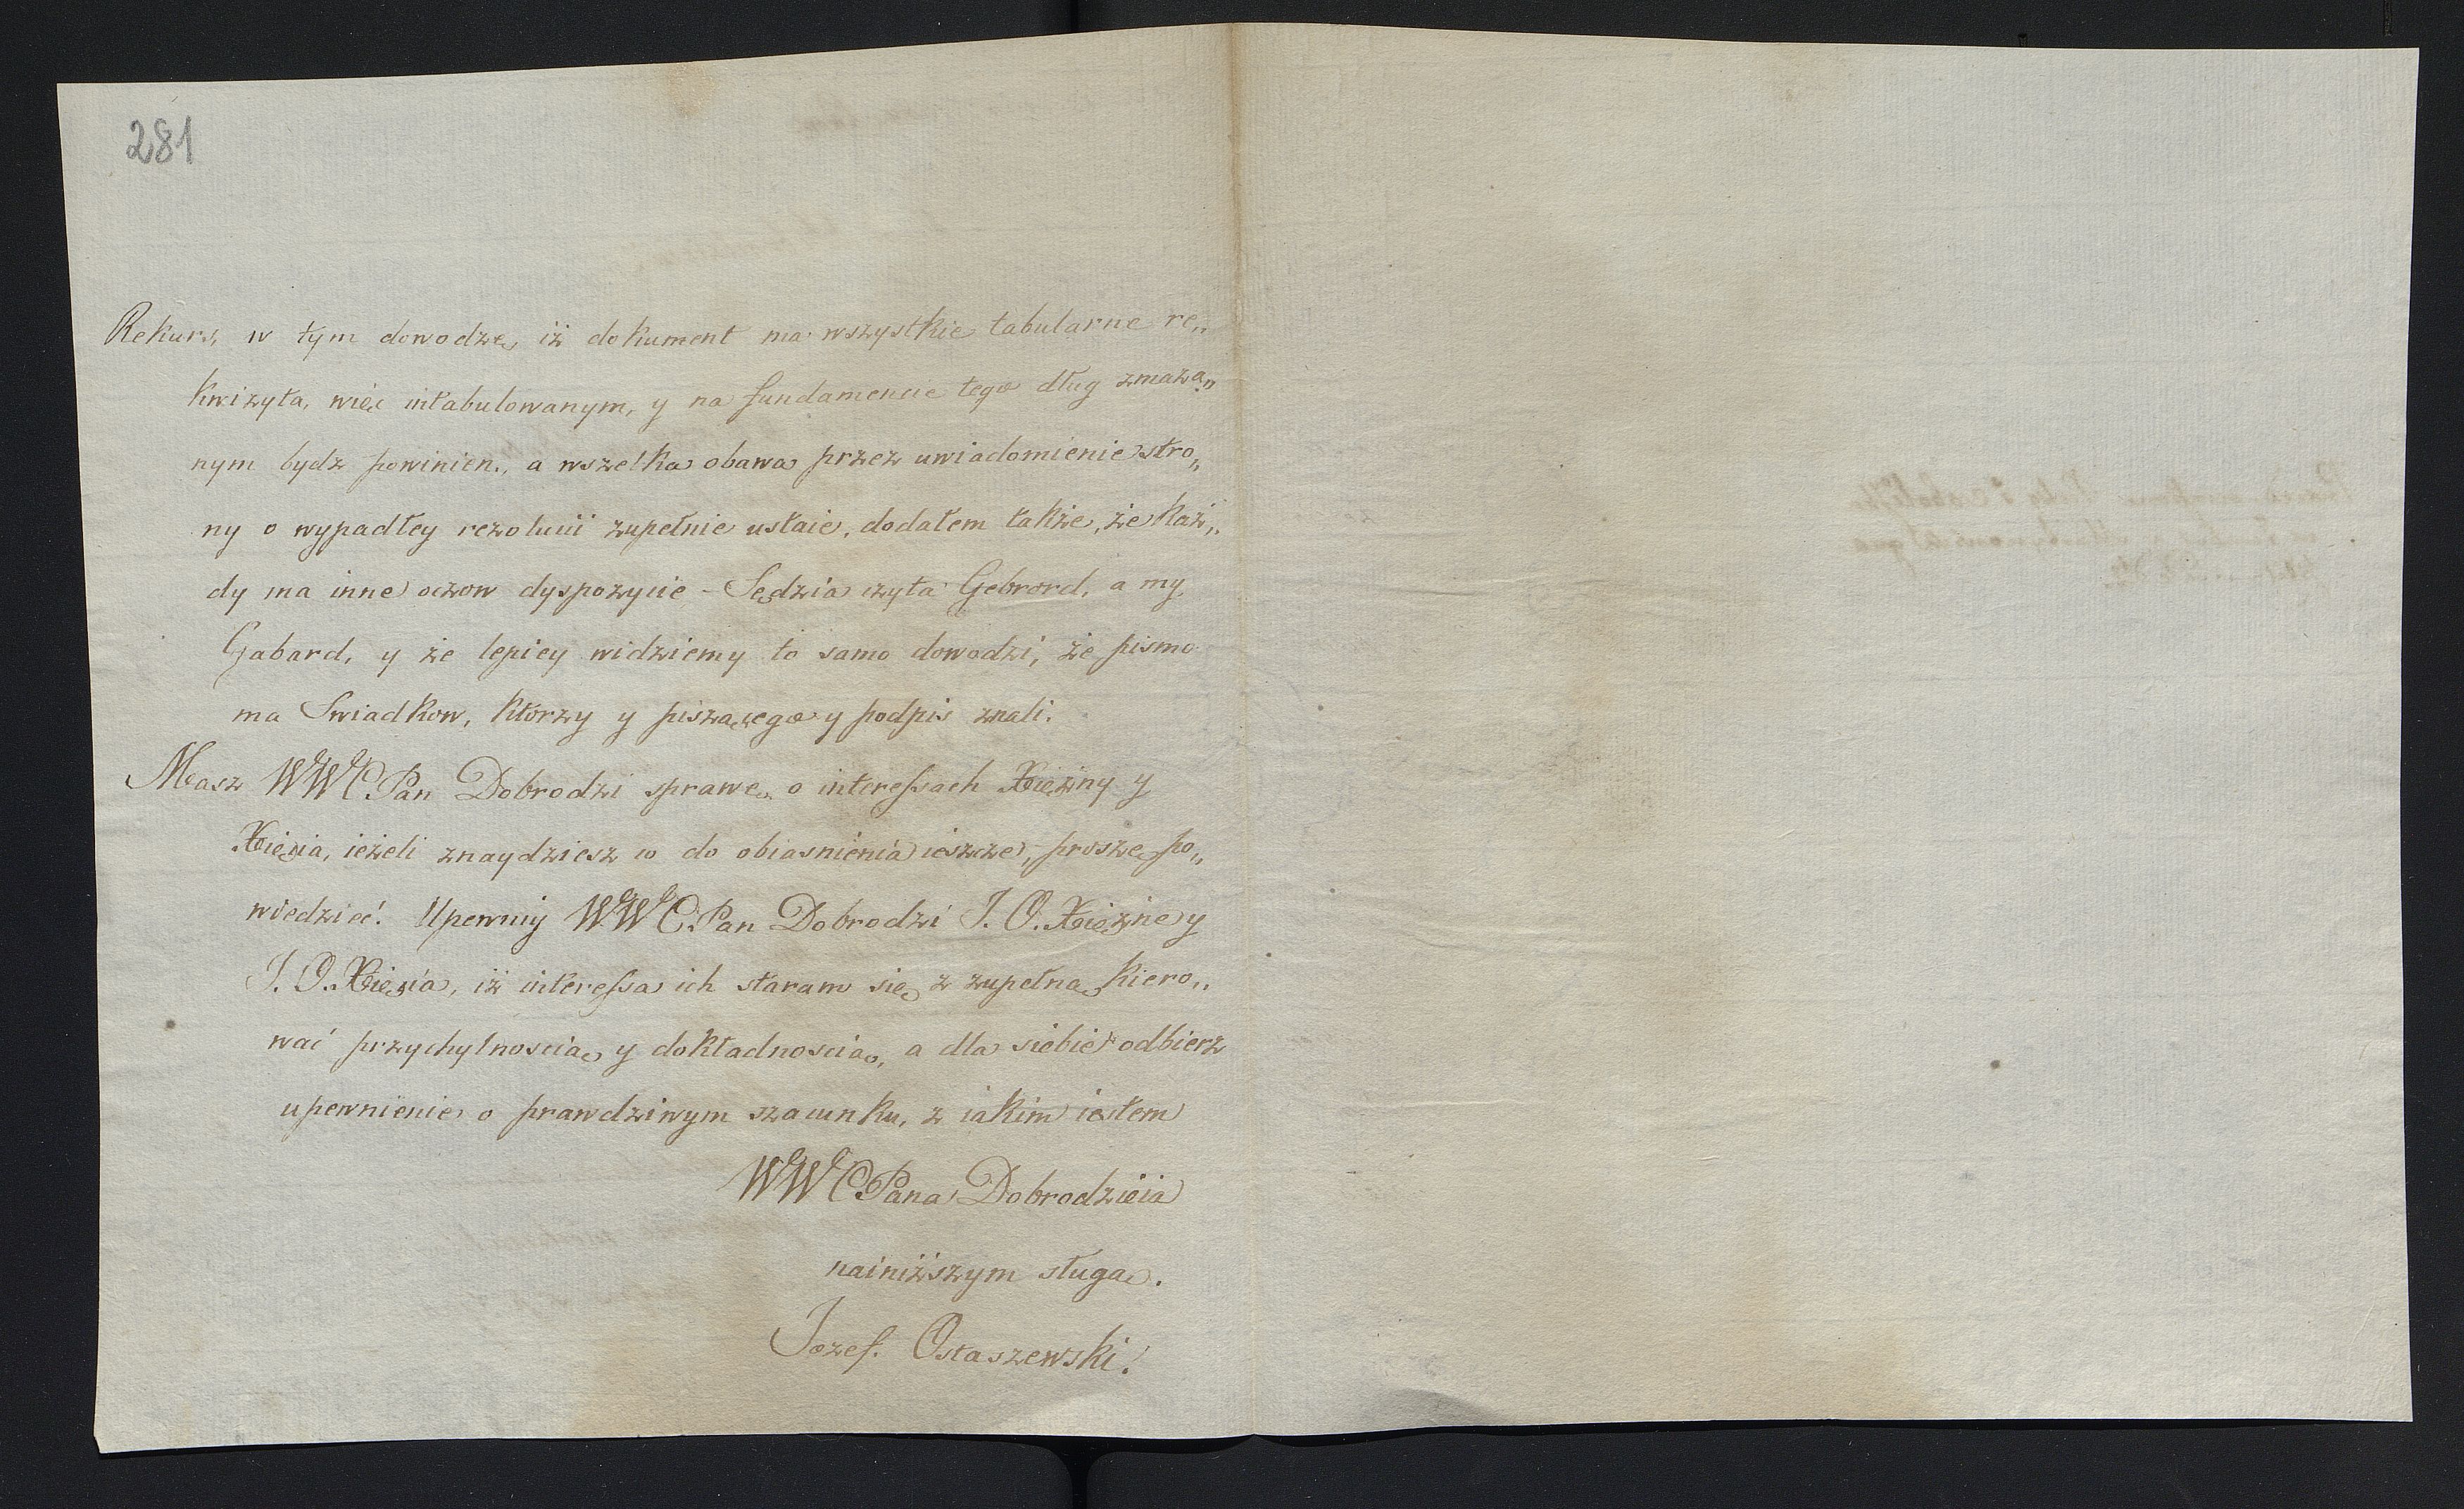 281
Rekurs, w tym dowodzę, iż dokument ma wszystkie tabularne re„
kwizyta, więc intabulowanym, y na fundamencie tego dług zmaza„
nym bydz powinien, a wszelka obawa przez uwiadomienie stro„
ny o wypadłey rezolucii zupełnie ustaie, dodałem także, że każ„
dy ma inne oczow dyspozycie – Sędzia czyta Gebrord, a my
Gabard, y że lepiey widziemy to samo dowodzi, że pismo
ma Swiadkow, ktorzy y piszącego y podpis znali.
Masz WWC Pan Dobrodzi sprawę o interessach Xiężny y
Xięcia, ieżeli znaydziesz co do obiasnienia ieszcze, proszę po„
wiedzieć! Upewniy WWC Pan Dobrodzi J. O. Xiężnę y
J. O. Xięcia, iż interessa ich staram się z zupełną kiero„
wać przychylnoscią y dokładnoscią, a dla siebie odbierz
upewnienie o prawdziwym szacunku, z iakim iestem
WWC Pana Dobrodzieia
nainiższym sługą.
Jozef. Ostaszewski!